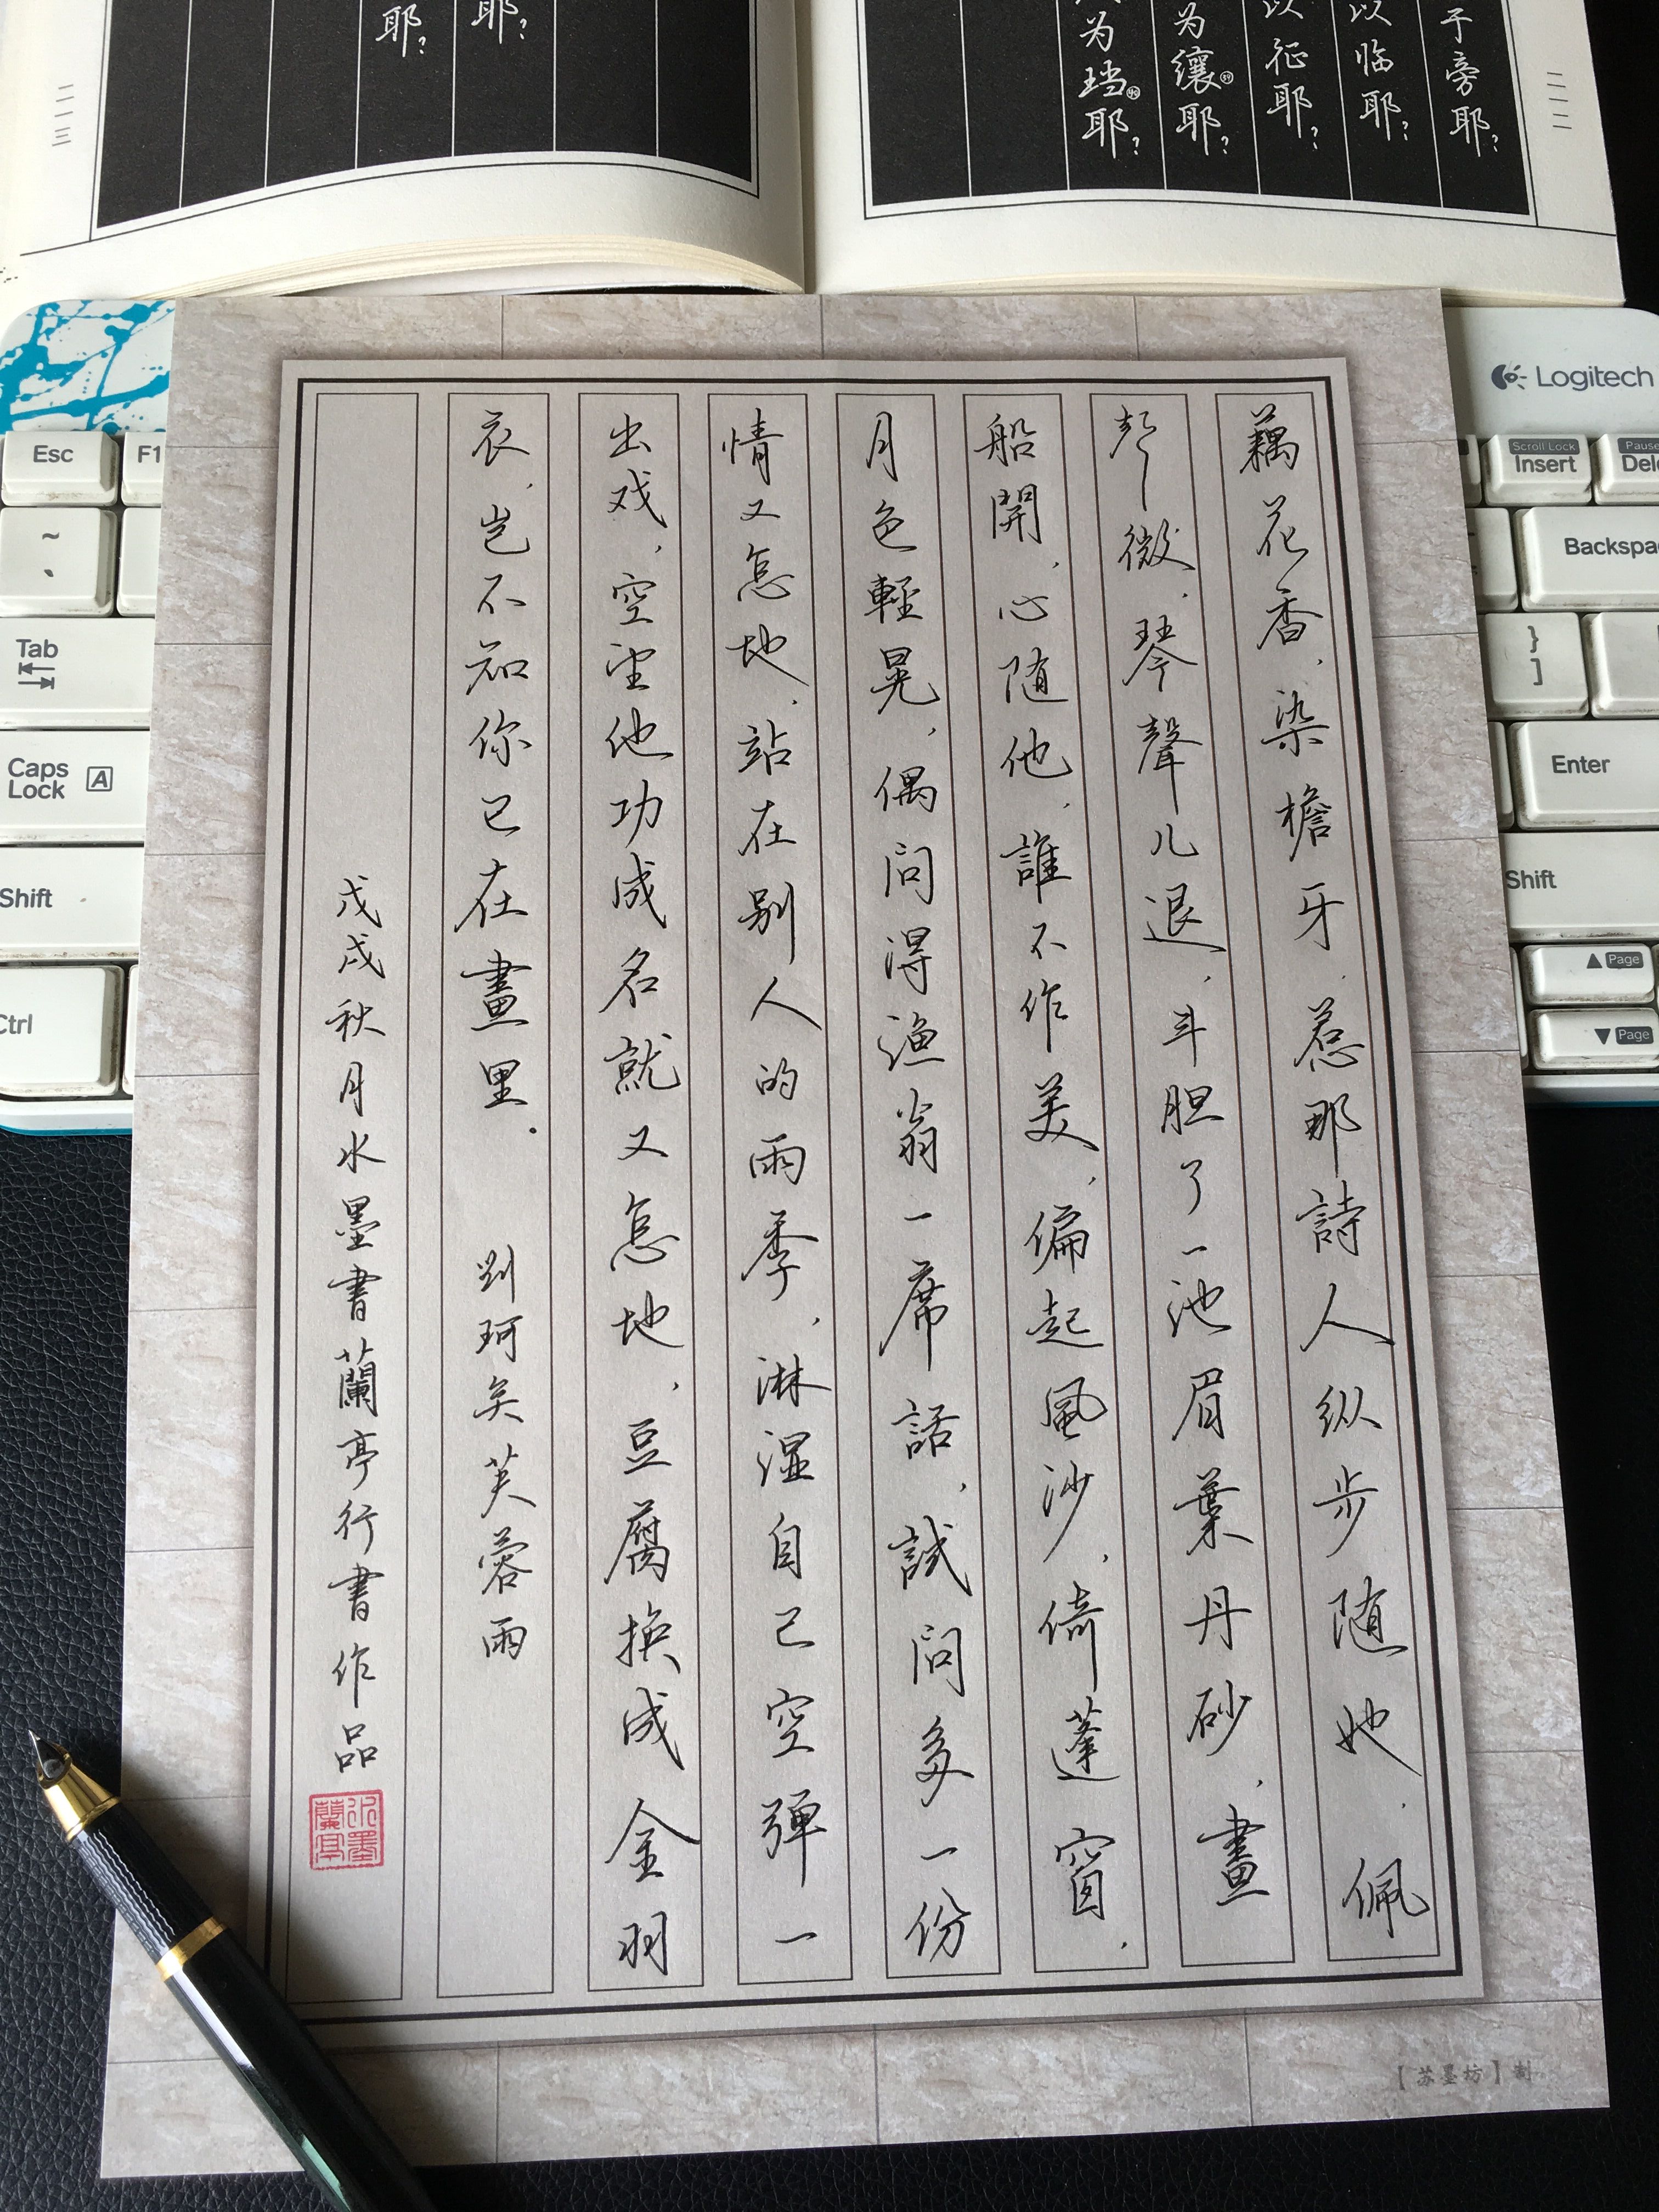 藕花香，染檐牙，惹那詩人纵步随她，佩
声微，琴聲儿退，斗胆了一池眉葉丹砂，畫
船開，心随他，誰不作美，偏起風沙，倚蓬窗，
月色輕晃，偶问得渔翁一席話，試问多一份
情又怎地，站在别人的雨季，淋湿自己空彈一
出戏，空望他功成名就又怎地，豆腐换成金羽
衣，岂不知你已在畫里．　别珂矣芙蓉雨
戊戌秋月水墨書蘭亭行書作品
水墨蘭亭
【苏墨坊】制
于旁耶？
以临耶？
以征耶？
为纕耶？
为珰耶？
耶？
耶？
二一二
二一三
Logitech
Esc
F1
~
Tab
Caps Lock
A
Shift
Ctrl
Scroll Lock
Insert
Pause
Dele
Backspa
}
]
Enter
Shift
▲ Page
▼ Page